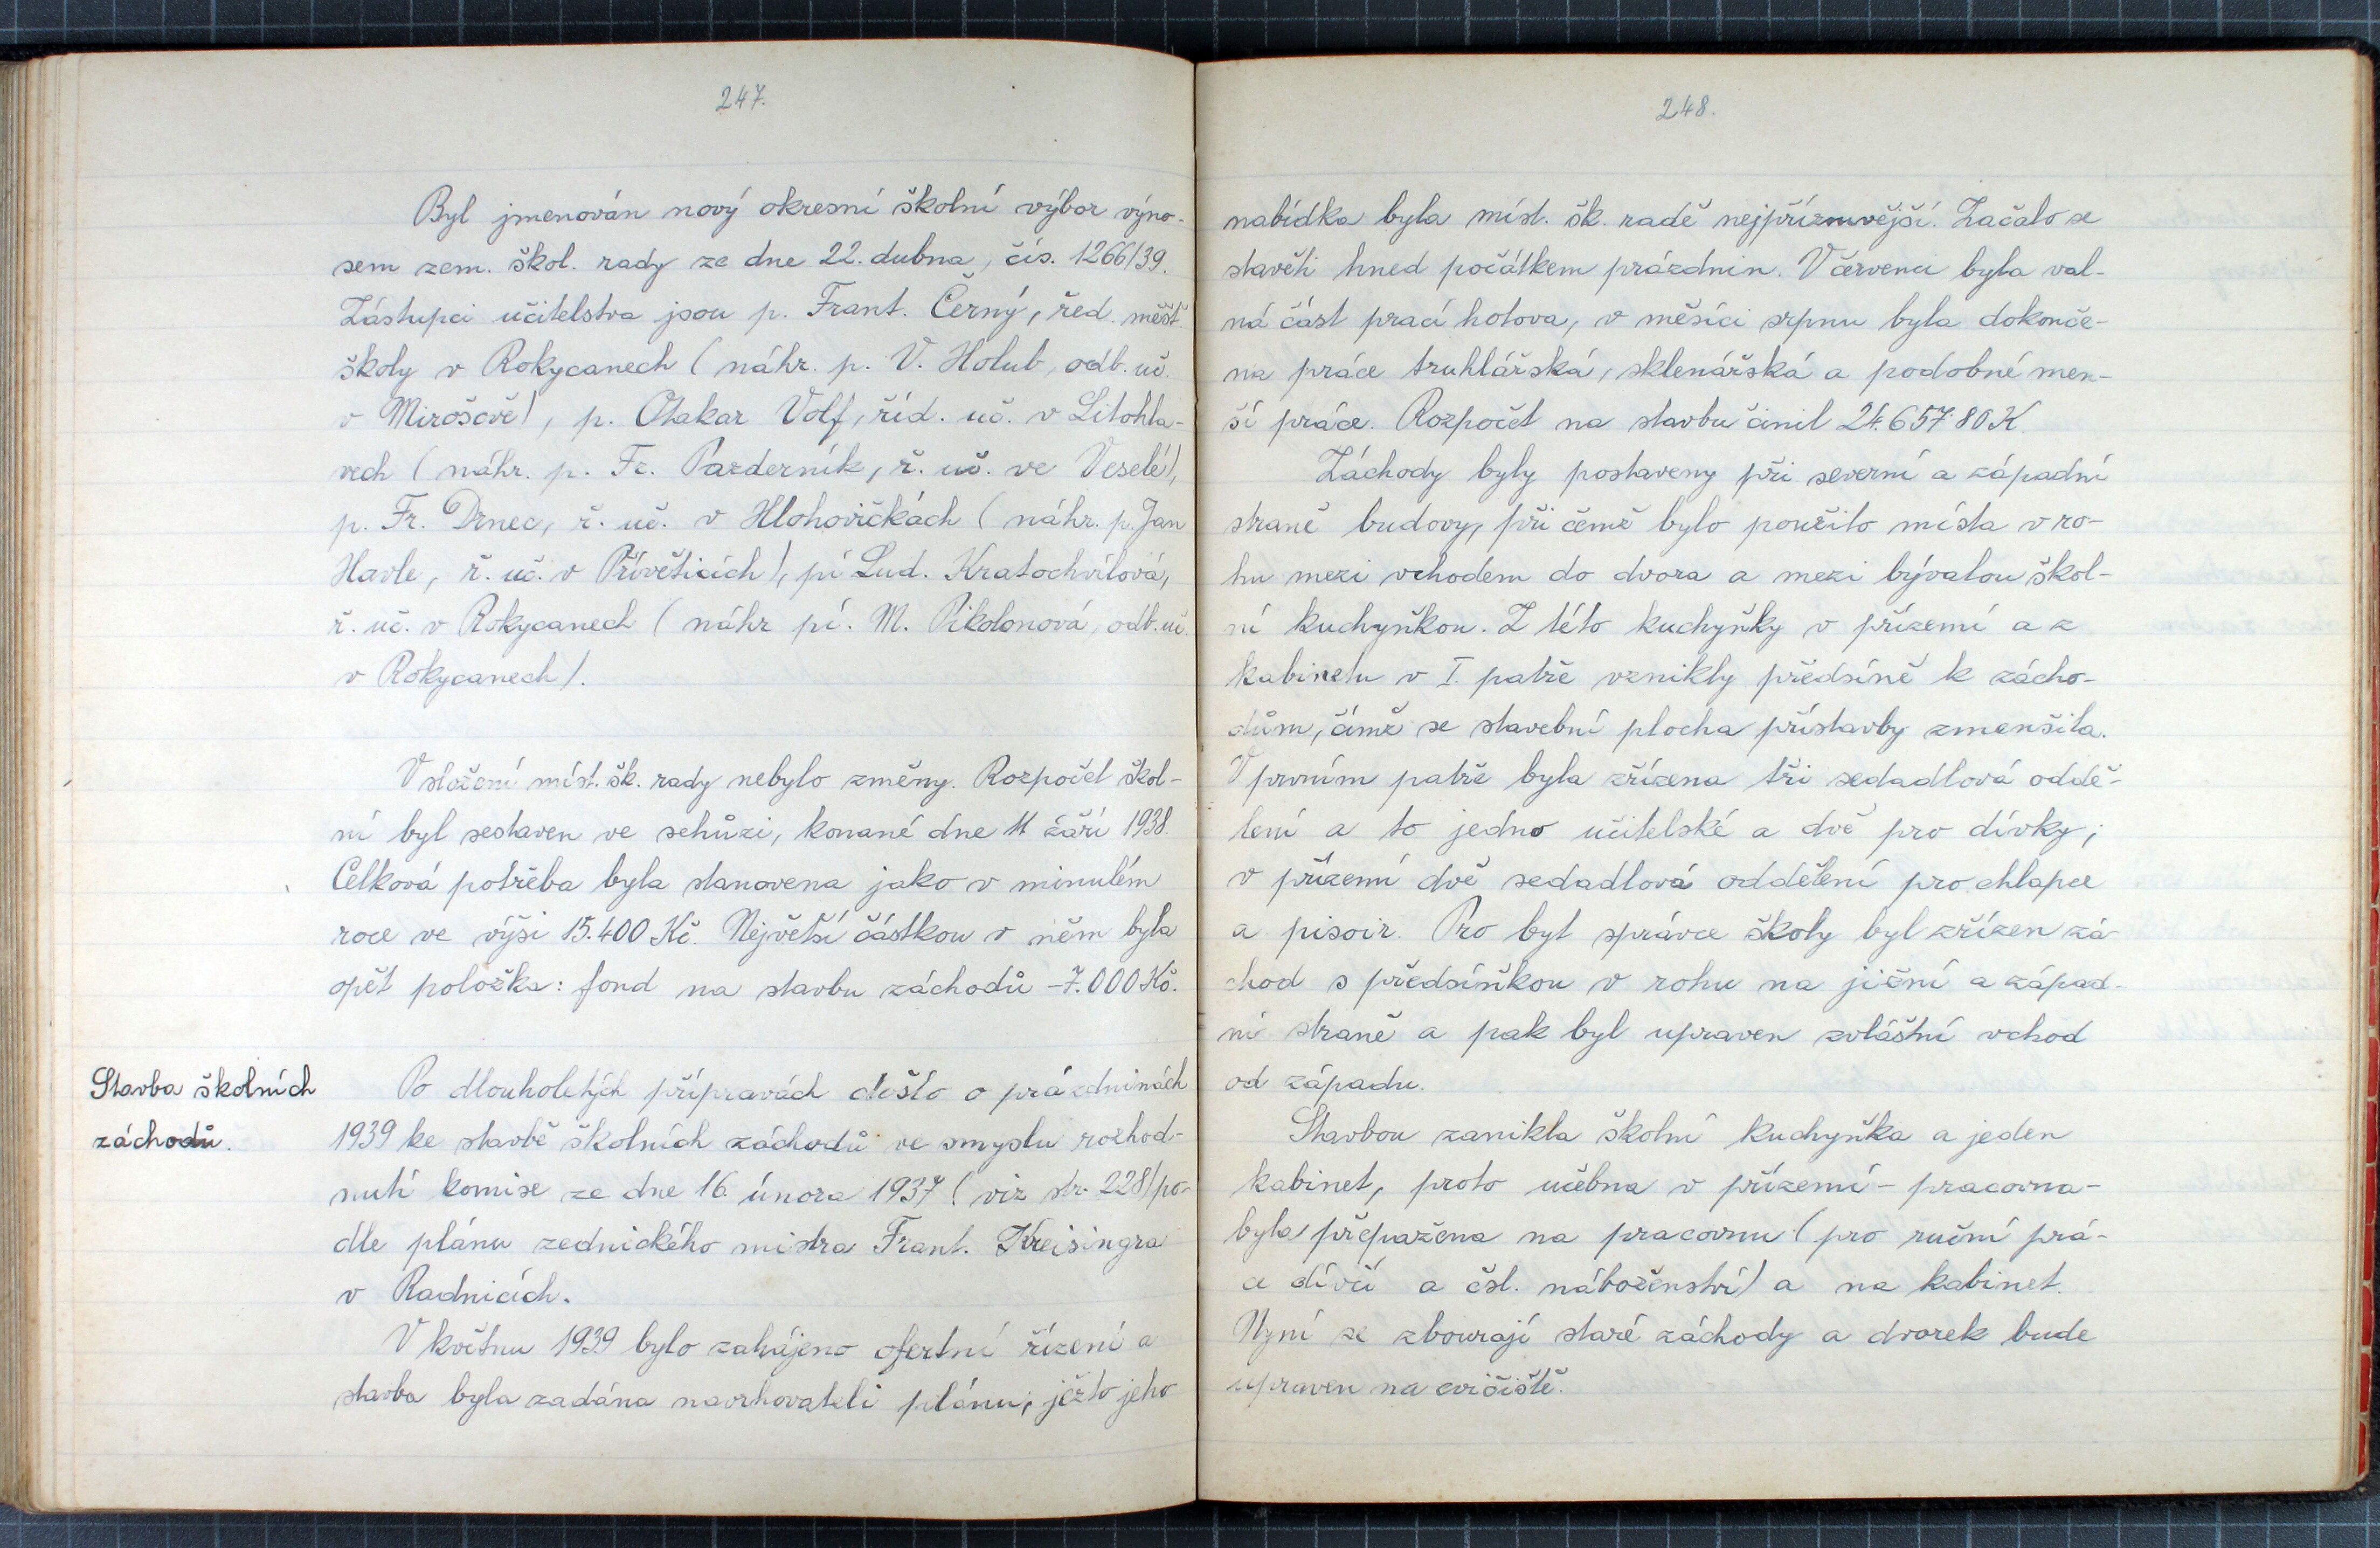 247.
Byl jmenován nový okresní školní výbor výno-
sem zem. škol. rady ze dne 22. dubna, čís. 1266/39.
Zástupci učitelstva jsou p. Frant. Černý, řed. měšť.
školy v Rokycanech (náhr. p. V. Holub, odb. uč.
v Mirošově), p. Otakar Volf, říd. uč. v Litohla-
vech (náhr. p. Fr. Pazderník, ř. uč. ve Veselé),
p. Fr. Drnec, ř. uč. v Hlohovičkách (náhr. p. Jan
Havle, ř. uč. v Přívěticích), pí Lud. Kratochvílová,
ř. uč. v Rokycanech (náhr pí. M. Pikolonová, odb. uč.
v Rokycanech).
V složení míst. šk. rady nebylo změny. Rozpočet škol-
ní byl sestaven ve schůzi, konané dne 11 září 1938.
Celková potřeba byla stanovena jako v minulém
roce ve výši 15.400 Kč. Největší částkou v něm byla
opět položka: fond na stavbu záchodů - 7.000 Kč.
Stavba školních
záchodů.
Po dlouholetých přípravách došlo o prázdninách
1939 ke stavbě školních záchodů ve smyslu rozhod-
nutí komise ze dne 16 února 1937 (viz str. 228) po-
dle plánu zednického mistra Frant. Kreisingra
v Radnicích.
V květnu 1939 bylo zahájeno ofertní řízení a
stavba byla zadána navrhovateli plánu, ježto jeho
248.
nabídka byla míst. šk. radě nejpříznivější. Začalo se
stavěti hned počátkem prázdnin. V červenci byla val-
ná část prací hotova, v měsíci srpnu byla dokonče-
na práce truhlářská, sklenářská a podobné men-
ší práce. Rozpočet na stavbu činil 24.657.80 K.
Záchody byly postaveny při severní a západní
straně budovy, při čemž bylo použito místa v ro-
hu mezi vchodem do dvora a mezi bývalou škol-
ní kuchyňkou. Z této kuchyňky v přízemí a z
kabinetu v I. patře vznikly předsíně k zácho-
dům, čímž se stavební plocha přístavby zmenšila.
V prvním patře byla zřízena tři sedadlová oddě-
lení a to jedno učitelské a dvě pro dívky;
v přízemí dvě sedadlová oddělení pro chlapce
a pisoir. Pro byt správce školy byl zřízen zá-
chod s předsíňkou v rohu na jižní a západ-
ní straně a pak byl upraven zvláštní vchod
od západu.
Stavbou zanikla školní kuchyňka a jeden
kabinet, proto učebna v přízemí - pracovna -
byla přepažena na pracovnu (pro ruční prá-
ce dívčí a čsl. náboženství) a na kabinet.
Nyní se zbourají staré záchody a dvorek bude
upraven na cvičiště.